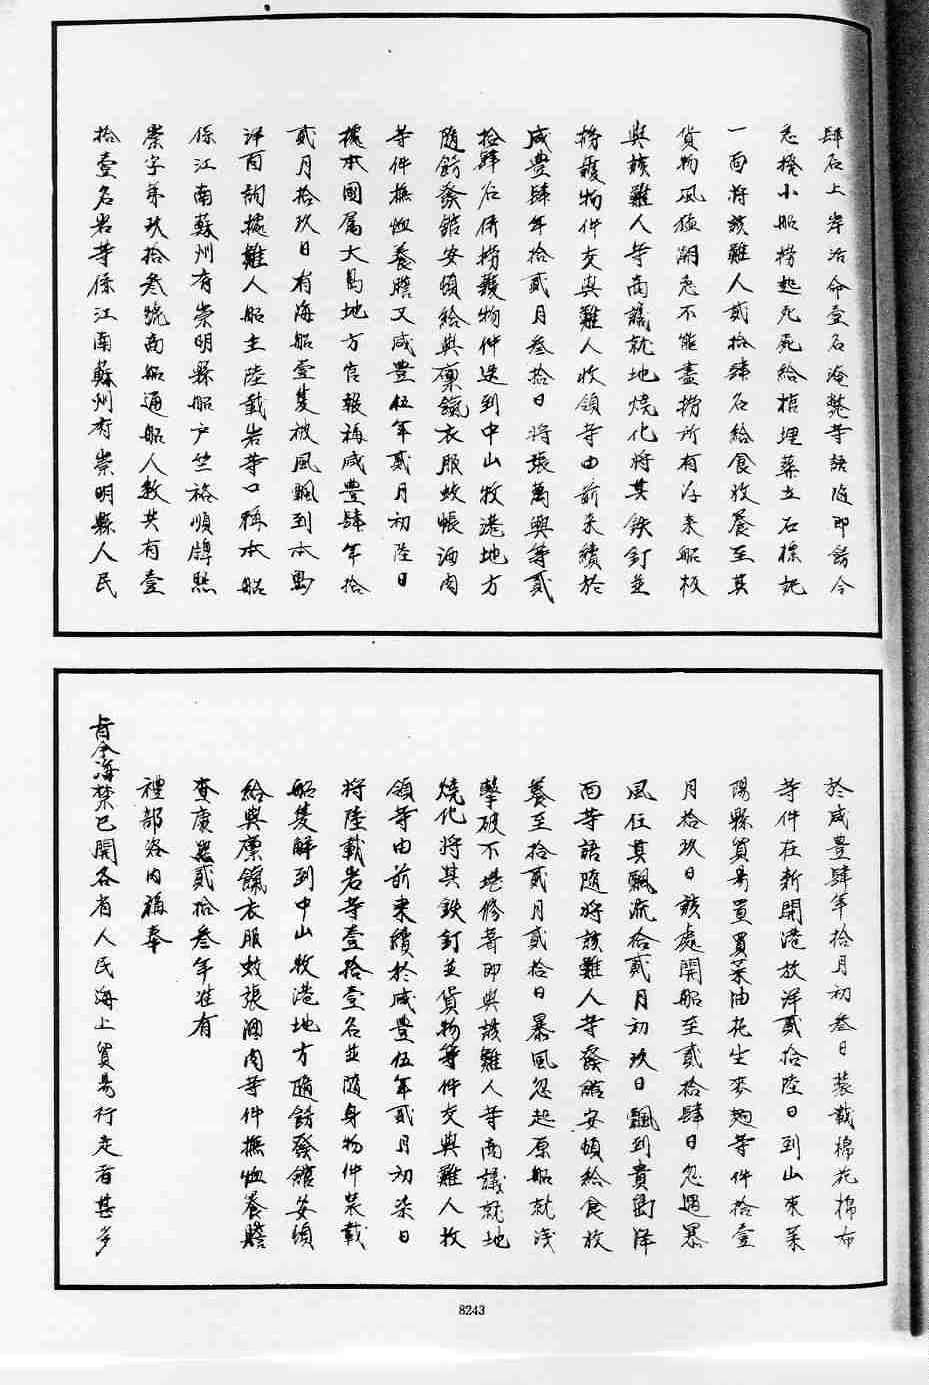 肆名上岸活命壹名淹斃等語隨即飭令
急撥小船撈起死屍給棺埋葬立石標記
一面將該難人貳拾肆名給食收養至其
貨物風強潮急不能盡撈所有浮來船板
與該難人等商議就地燒化將其鉄釘並
撈獲物件交與難人收領等由前來續於
咸豊肆年拾貳月叁拾日將張萬興等貳
拾肆名併撈獲物件送到中山牧港地方
隨飭發館安頓給與廩餼衣服蚊帳酒肉
等件撫恤養膳又咸豊伍年貳月初陸日
據本國属大島地方官報稱咸豊肆年拾
貳月拾玖日有海船壹隻被風飄到本島
洋面詢據難人船主陸載岩等口稱本船
係江南蘇州府崇明縣船户竺裕順牌照
崇字第玖拾叁號商船通船人数共有壹
拾壹名岩等係江南蘇州府崇明縣人民
於咸豊肆年拾月初叁日裝載棉花棉布
等件在新開港放洋貳拾陸日到山東萊
陽縣貿易置買菜油花生麥麯等件拾壹
月拾玖日該處開船至貳拾肆日忽遇暴
風任其飄流拾貳月初玖日飄到貴島洋
面等語隨將該難人等發館安頓給食收
養至拾貳月貳拾日暴風忽起原船就淺
擊破不堪修葺即與該難人等商議就地
燒化將其鉄釘並貨物等件交與難人收
領等由前來續於咸豊伍年貳月初柒日
將陸載岩等壹拾壹名並隨身物件裝載
船隻解到中山牧港地方隨飭發館安頓
給與廩餼衣服蚊張酒肉等件撫恤養贍
查康熙貳拾叁年准有
禮部咨内稱奉
旨今海禁已開各省人民海上貿易行走者甚多
8243